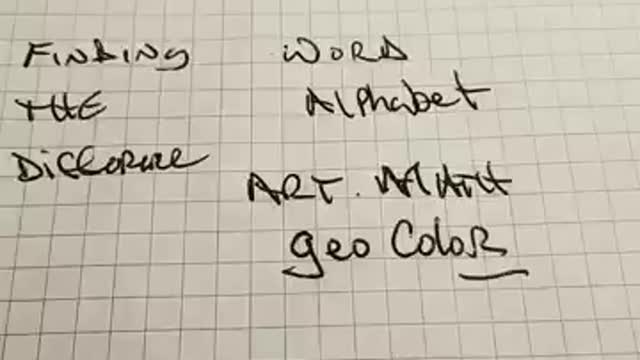 FINDING
THE
WORD
Alphabet
ART. MATH
geo Color